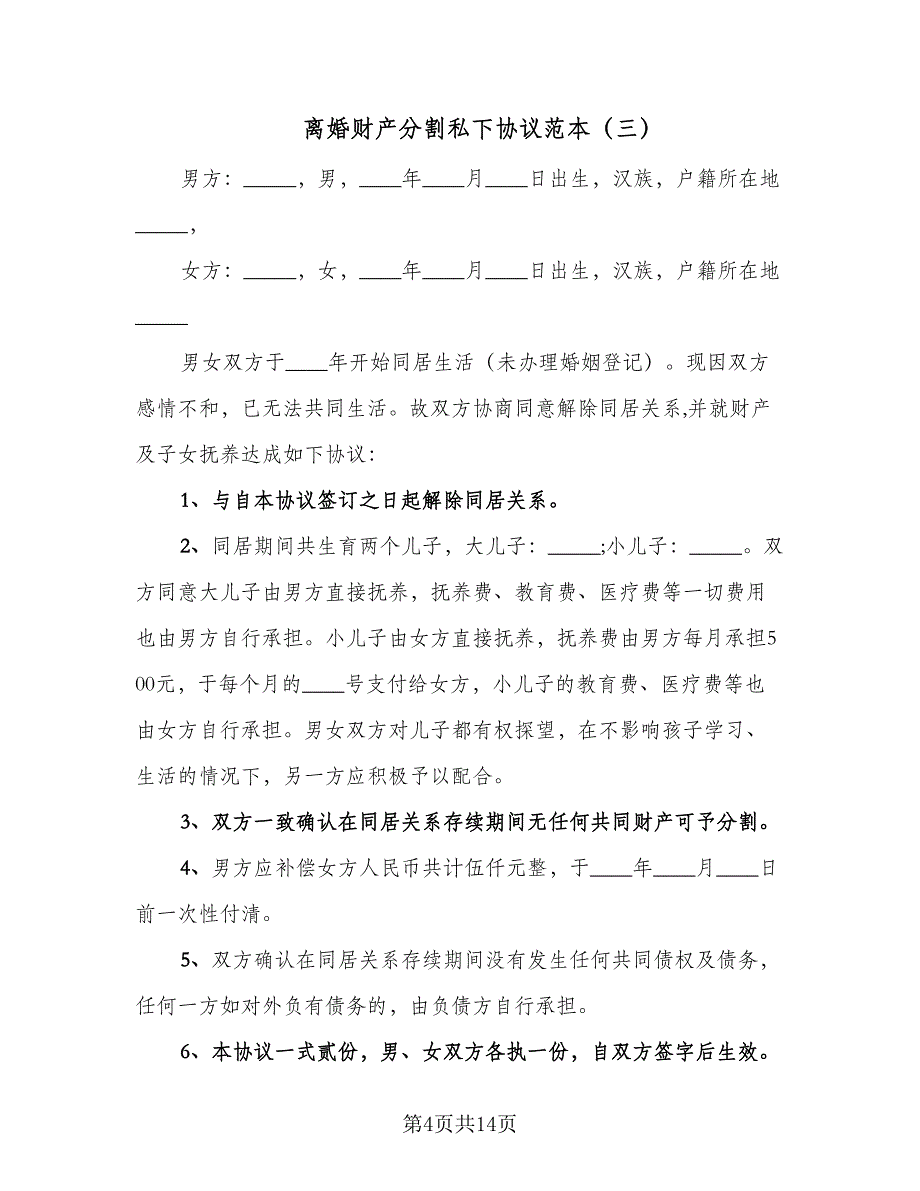 离婚财产分割私下协议范本（三）
男方：_____，男，____年____月____日出生，汉族，户籍所在地
_____，
女方：_____，女，____年____月____日出生，汉族，户籍所在地
_____
男女双方于____年开始同居生活（未办理婚姻登记）。现因双方
感情不和，已无法共同生活。故双方协商同意解除同居关系,并就财产
及子女抚养达成如下协议：
1、与自本协议签订之日起解除同居关系。
2、同居期间共生育两个儿子，大儿子：_____;小儿子：_____。双
方同意大儿子由男方直接抚养，抚养费、教育费、医疗费等一切费用
也由男方自行承担。小儿子由女方直接抚养，抚养费由男方每月承担5
00元，于每个月的____号支付给女方，小儿子的教育费、医疗费等也
由女方自行承担。男女双方对儿子都有权探望，在不影响孩子学习、
生活的情况下，另一方应积极予以配合。
3、双方一致确认在同居关系存续期间无任何共同财产可予分割。
4、男方应补偿女方人民币共计伍仟元整，于____年____月____日
前一次性付清。
5、双方确认在同居关系存续期间没有发生任何共同债权及债务，
任何一方如对外负有债务的，由负债方自行承担。
6、本协议一式贰份，男、女双方各执一份，自双方签字后生效。
第4页共14页